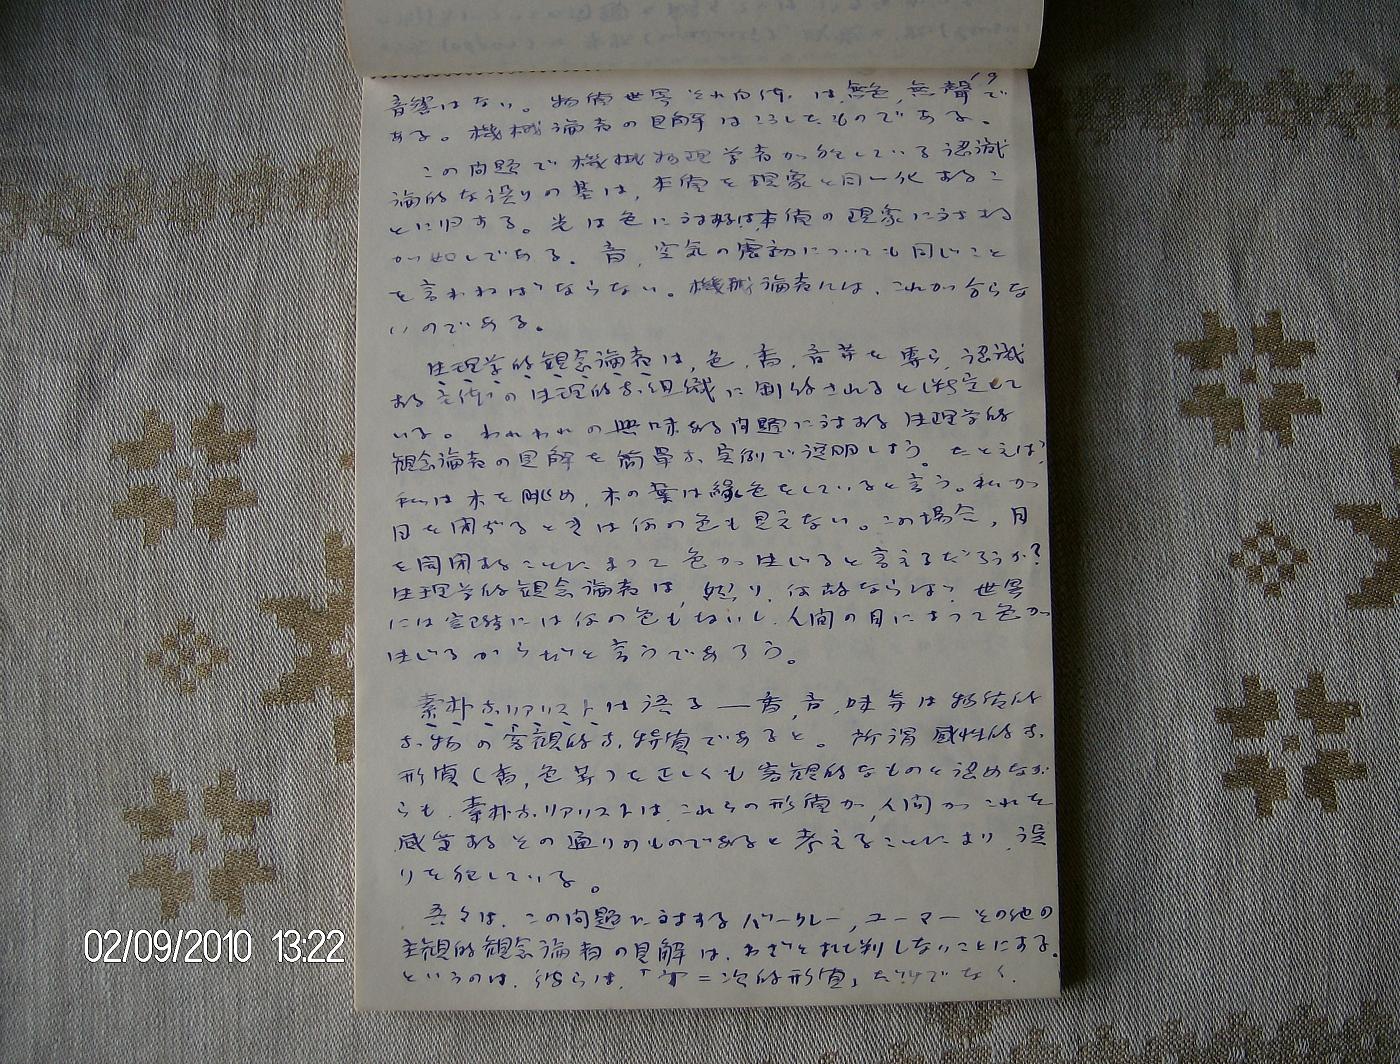 19
音響はない。物質世界それ自体は、無色、無聲で
ある。機械論者の見解はこうしたものである。
この問題で機械物理学者が犯している認識
論的な誤りの基は、本質を現象と同一化するこ
とに帰する。光は色に対するは本質の現象に対する
が如しである。音、空気の震動についても同じこと
を言わねばならない。機械論者には、これが分らな
いのである。
生理学的観念論者は、色、香、音等を専ら、認識
する主体の生理的な組織に制約されると判定して
いる。われわれの興味ある問題に対する生理学的
観念論者の見解を簡単な実例で説明しよう。たとえば、
私は木を眺め、木の葉は緑色をしていると言う。私が
目を閉ぢるときは何の色も見えない。この場合、目
を開閉することによって色が生じると言えるだろうか?
生理学的観念論者は、然り、何故ならば、世界
には実際には何の色もないし、人間の目によって色が
生じるからだと言うであろう。
素朴なリアリストは語る—香、音、味等は物質的
な物の客観的な特質であると。所謂感性的な
形質(香、色等)を正しくも客観的なものと認めなが
らも、素朴なリアリストは、これらの形質が、人間がこれを
感覚するその通りのものであると考えることにより、誤
りを犯している。
吾々は、この問題に対するバークレー、ユーマーその他の
主観的観念論者の見解は、わざとれて判しないことにする。
というのは、彼らは、「第二次的形質」だけでなく、
02/09/2010 13:22